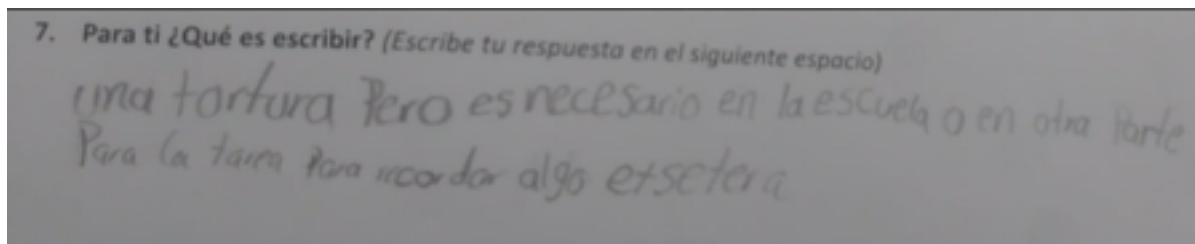 7. Para ti ¿Qué es escribir? (Escribe tu respuesta en el siguiente espacio)
una tortura Pero es necesario en la escuela o en otra Parte
Para la tarea Para recordar algo etsetera